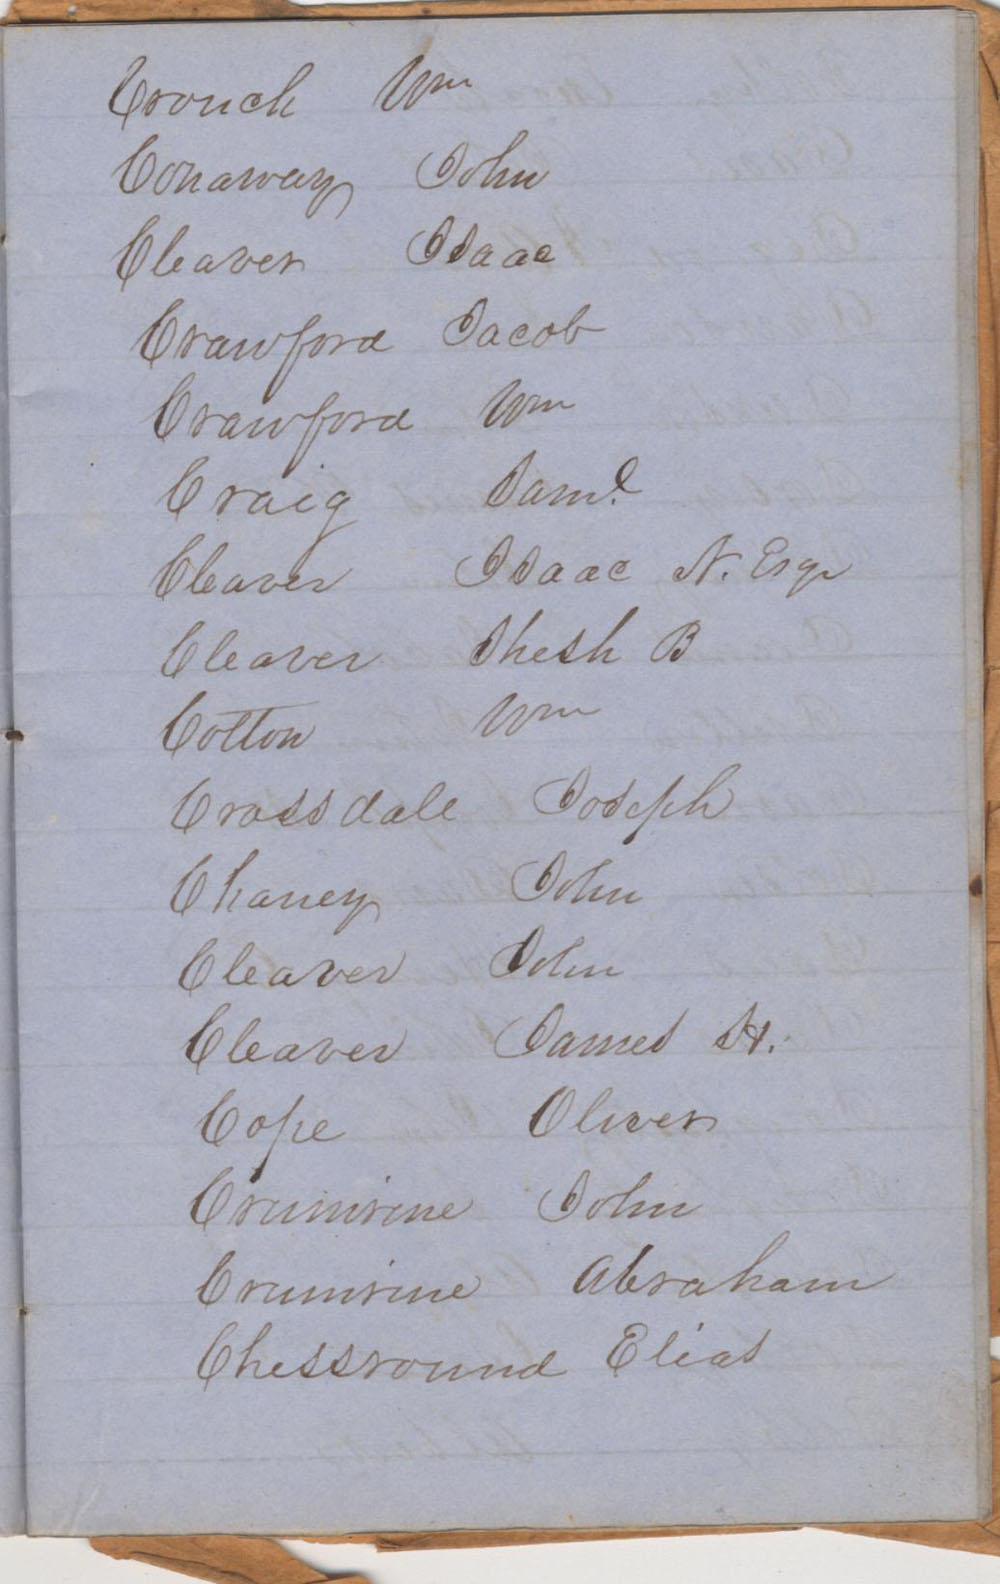 Crouch Wm
Conaway John
Cleaver Isaac
Crawford Jacob
Crawford Wm
Craig Saml
Cleaver Isaac N. Esqr
Cleaver Shesh B
Cotton Wm
Crossdale Joseph
Chaney John
Cleaver John
Cleaver James H.
Cope Oliver
Crumrine John
Crumrine Abraham
Chessround Elias